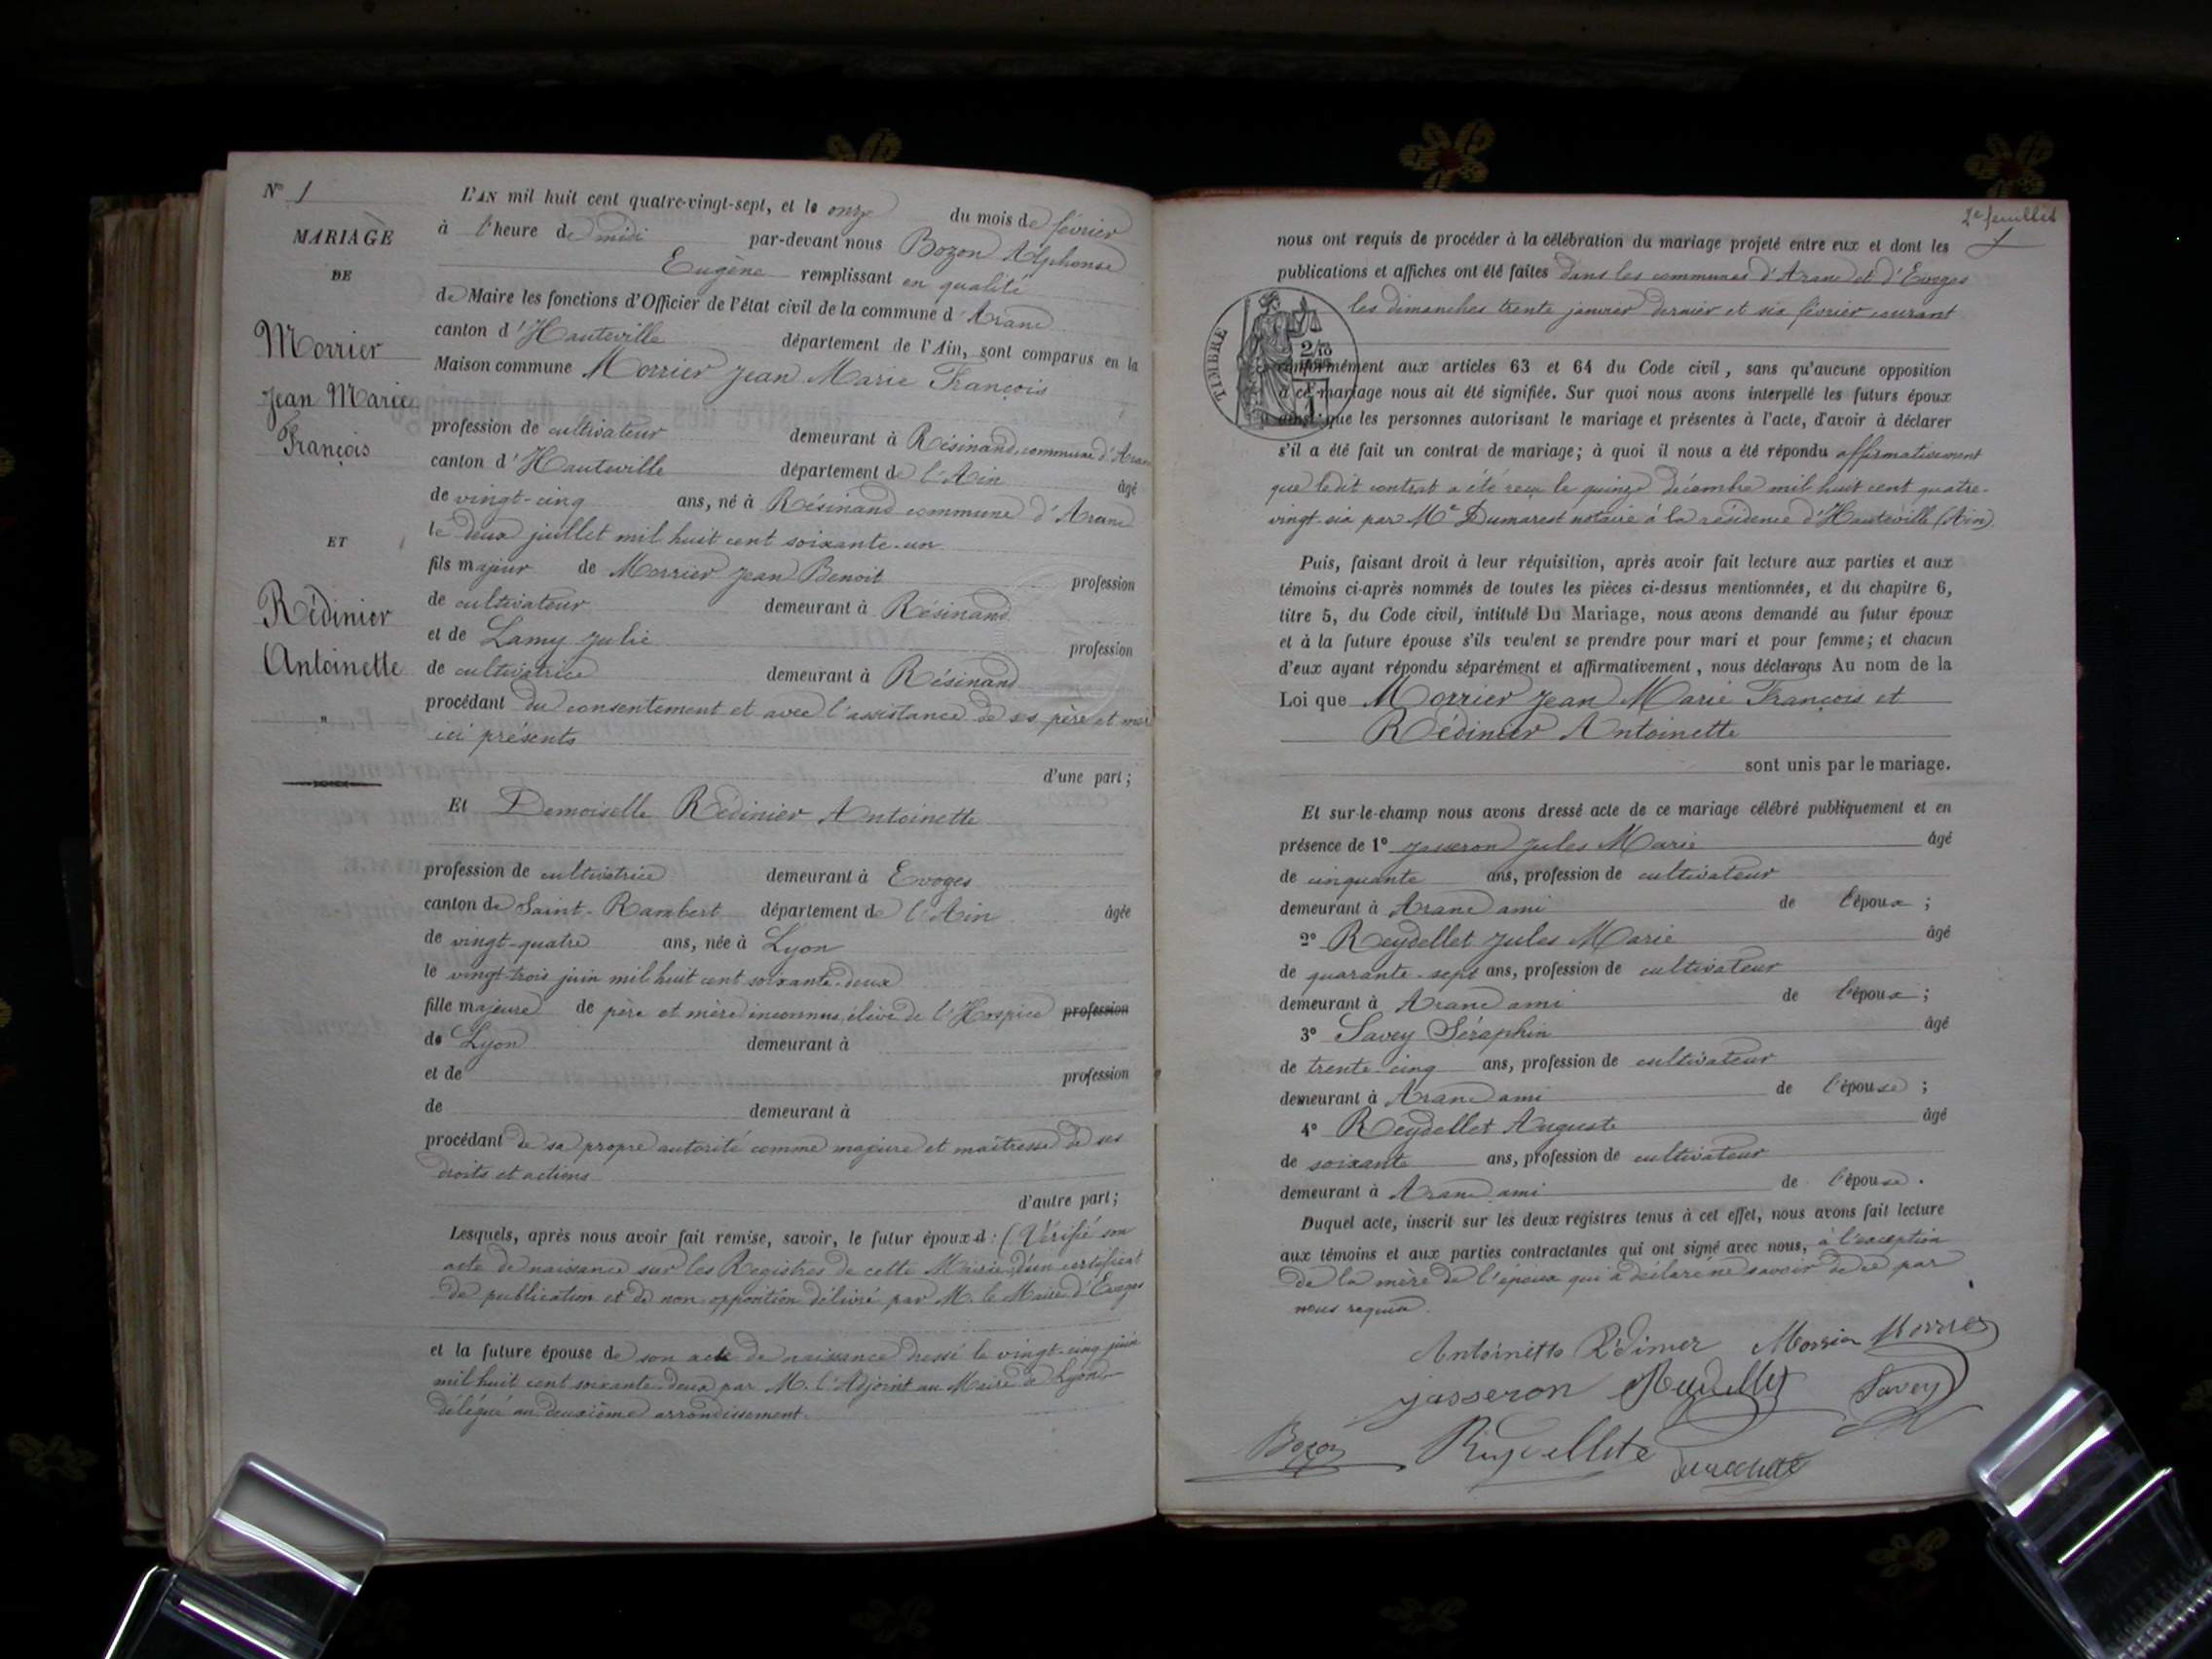 N° 1
MARIAGE
DE
Morrier
Jean Marie
François
ET
Rédinier
Antoinette
"
L'AN mil huit cent quatre-vingt-sept, et le onze du mois de février
à l'heure de midi par-devant nous Bozon Alphonse
Eugène remplissant en qualité
de Maire les fonctions d'Officier de l'état civil de la commune d'Aranc
canton d'Hauteville département de l'Ain, sont comparus en la
Maison commune Morrier Jean Marie François
profession de cultivateur demeurant à Résinand, commune d'Aranc
canton d'Hauteville département de l'Ain âgé
de vingt-cinq ans, né à Résinand commune d'Aranc
le deux juillet mil huit cent soixante-un
fils majeur de Morrier Jean Benoit profession
de cultivateur demeurant à Résinand
et de Lamy Julie profession
de cultivatrice demeurant à Résinand
procédant du consentement et avec l'assistance de ses père et mère
ici présents
d'une part;
Et Demoiselle Rédinier Antoinette
profession de cultivatrice demeurant à Evoges
canton de Saint-Rambert département de l'Ain âgée
de vingt-quatre ans, née à Lyon
le vingt-trois juin mil huit cent soixante-deux
fille majeure de père et mère inconnus, élève de l'Hospice profession
de Lyon demeurant à
et de profession
de demeurant à
procédant de sa propre autorité comme majeure et maîtresse de ses
droits et actions
d'autre part;
Lesquels, après nous avoir fait remise, savoir, le futur époux d: (Vérifié son
acte de naissance sur les Registres de cette Mairie, d'un certificat
de publication et de non opposition délivré par M. le Maire d'Evoges
et la future épouse de son acte de naissance dressé le vingt-cinq juin
mil huit cent soixante-deux par M. l'Adjoint au Maire de Lyon
délégué au deuxième arrondissement.
2e feuillet
nous ont requis de procéder à la célébration du mariage projeté entre eux et dont les
publications et affiches ont été faites dans les communes d'Aranc et d'Evoges
les dimanches trente janvier dernier et six février courant
TIMBRE
conformément aux articles 63 et 64 du Code civil, sans qu'aucune opposition
à ce mariage nous ait été signifiée. Sur quoi nous avons interpellé les futurs époux
ainsi que les personnes autorisant le mariage et présentes à l'acte, d'avoir à déclarer
s'il a été fait un contrat de mariage; à quoi il nous a été répondu affirmativement
que ledit contrat a été reçu le quinze décembre mil huit cent quatre-
vingt-six par Me Dumarest notaire à la résidence d'Hauteville (Ain)
Puis, faisant droit à leur réquisition, après avoir fait lecture aux parties et aux
témoins ci-après nommés de toutes les pièces ci-dessus mentionnées, et du chapitre 6,
titre 5, du Code civil, intitulé Du Mariage, nous avons demandé au futur époux
et à la future épouse s'ils veulent se prendre pour mari et pour femme; et chacun
d'eux ayant répondu séparément et affirmativement, nous déclarons Au nom de la
Loi que Morrier Jean Marie François et
Rédinier Antoinette
sont unis par le mariage.
Et sur-le-champ nous avons dressé acte de ce mariage célébré publiquement et en
présence de 1° Jasseron Jules Marie âgé
de cinquante ans, profession de cultivateur
demeurant à Aranc ami de l'époux;
2° Reydellet Jules Marie âgé
de quarante-sept ans, profession de cultivateur
demeurant à Aranc ami de l'époux;
3° Savey Séraphin âgé
de trente-cinq ans, profession de cultivateur
demeurant à Aranc ami de l'épouse;
4° Reydellet Auguste âgé
de soixante ans, profession de cultivateur
demeurant à Aranc ami de l'épouse.
Duquel acte, inscrit sur les deux registres tenus à cet effet, nous avons fait lecture
aux témoins et aux parties contractantes qui ont signé avec nous, à l'exception
de la mère de l'époux qui a déclaré ne savoir de ce par
nous requise.
Antoinette Rédinier Morrier Morrier
Jasseron Reydellet Savey
Bozon